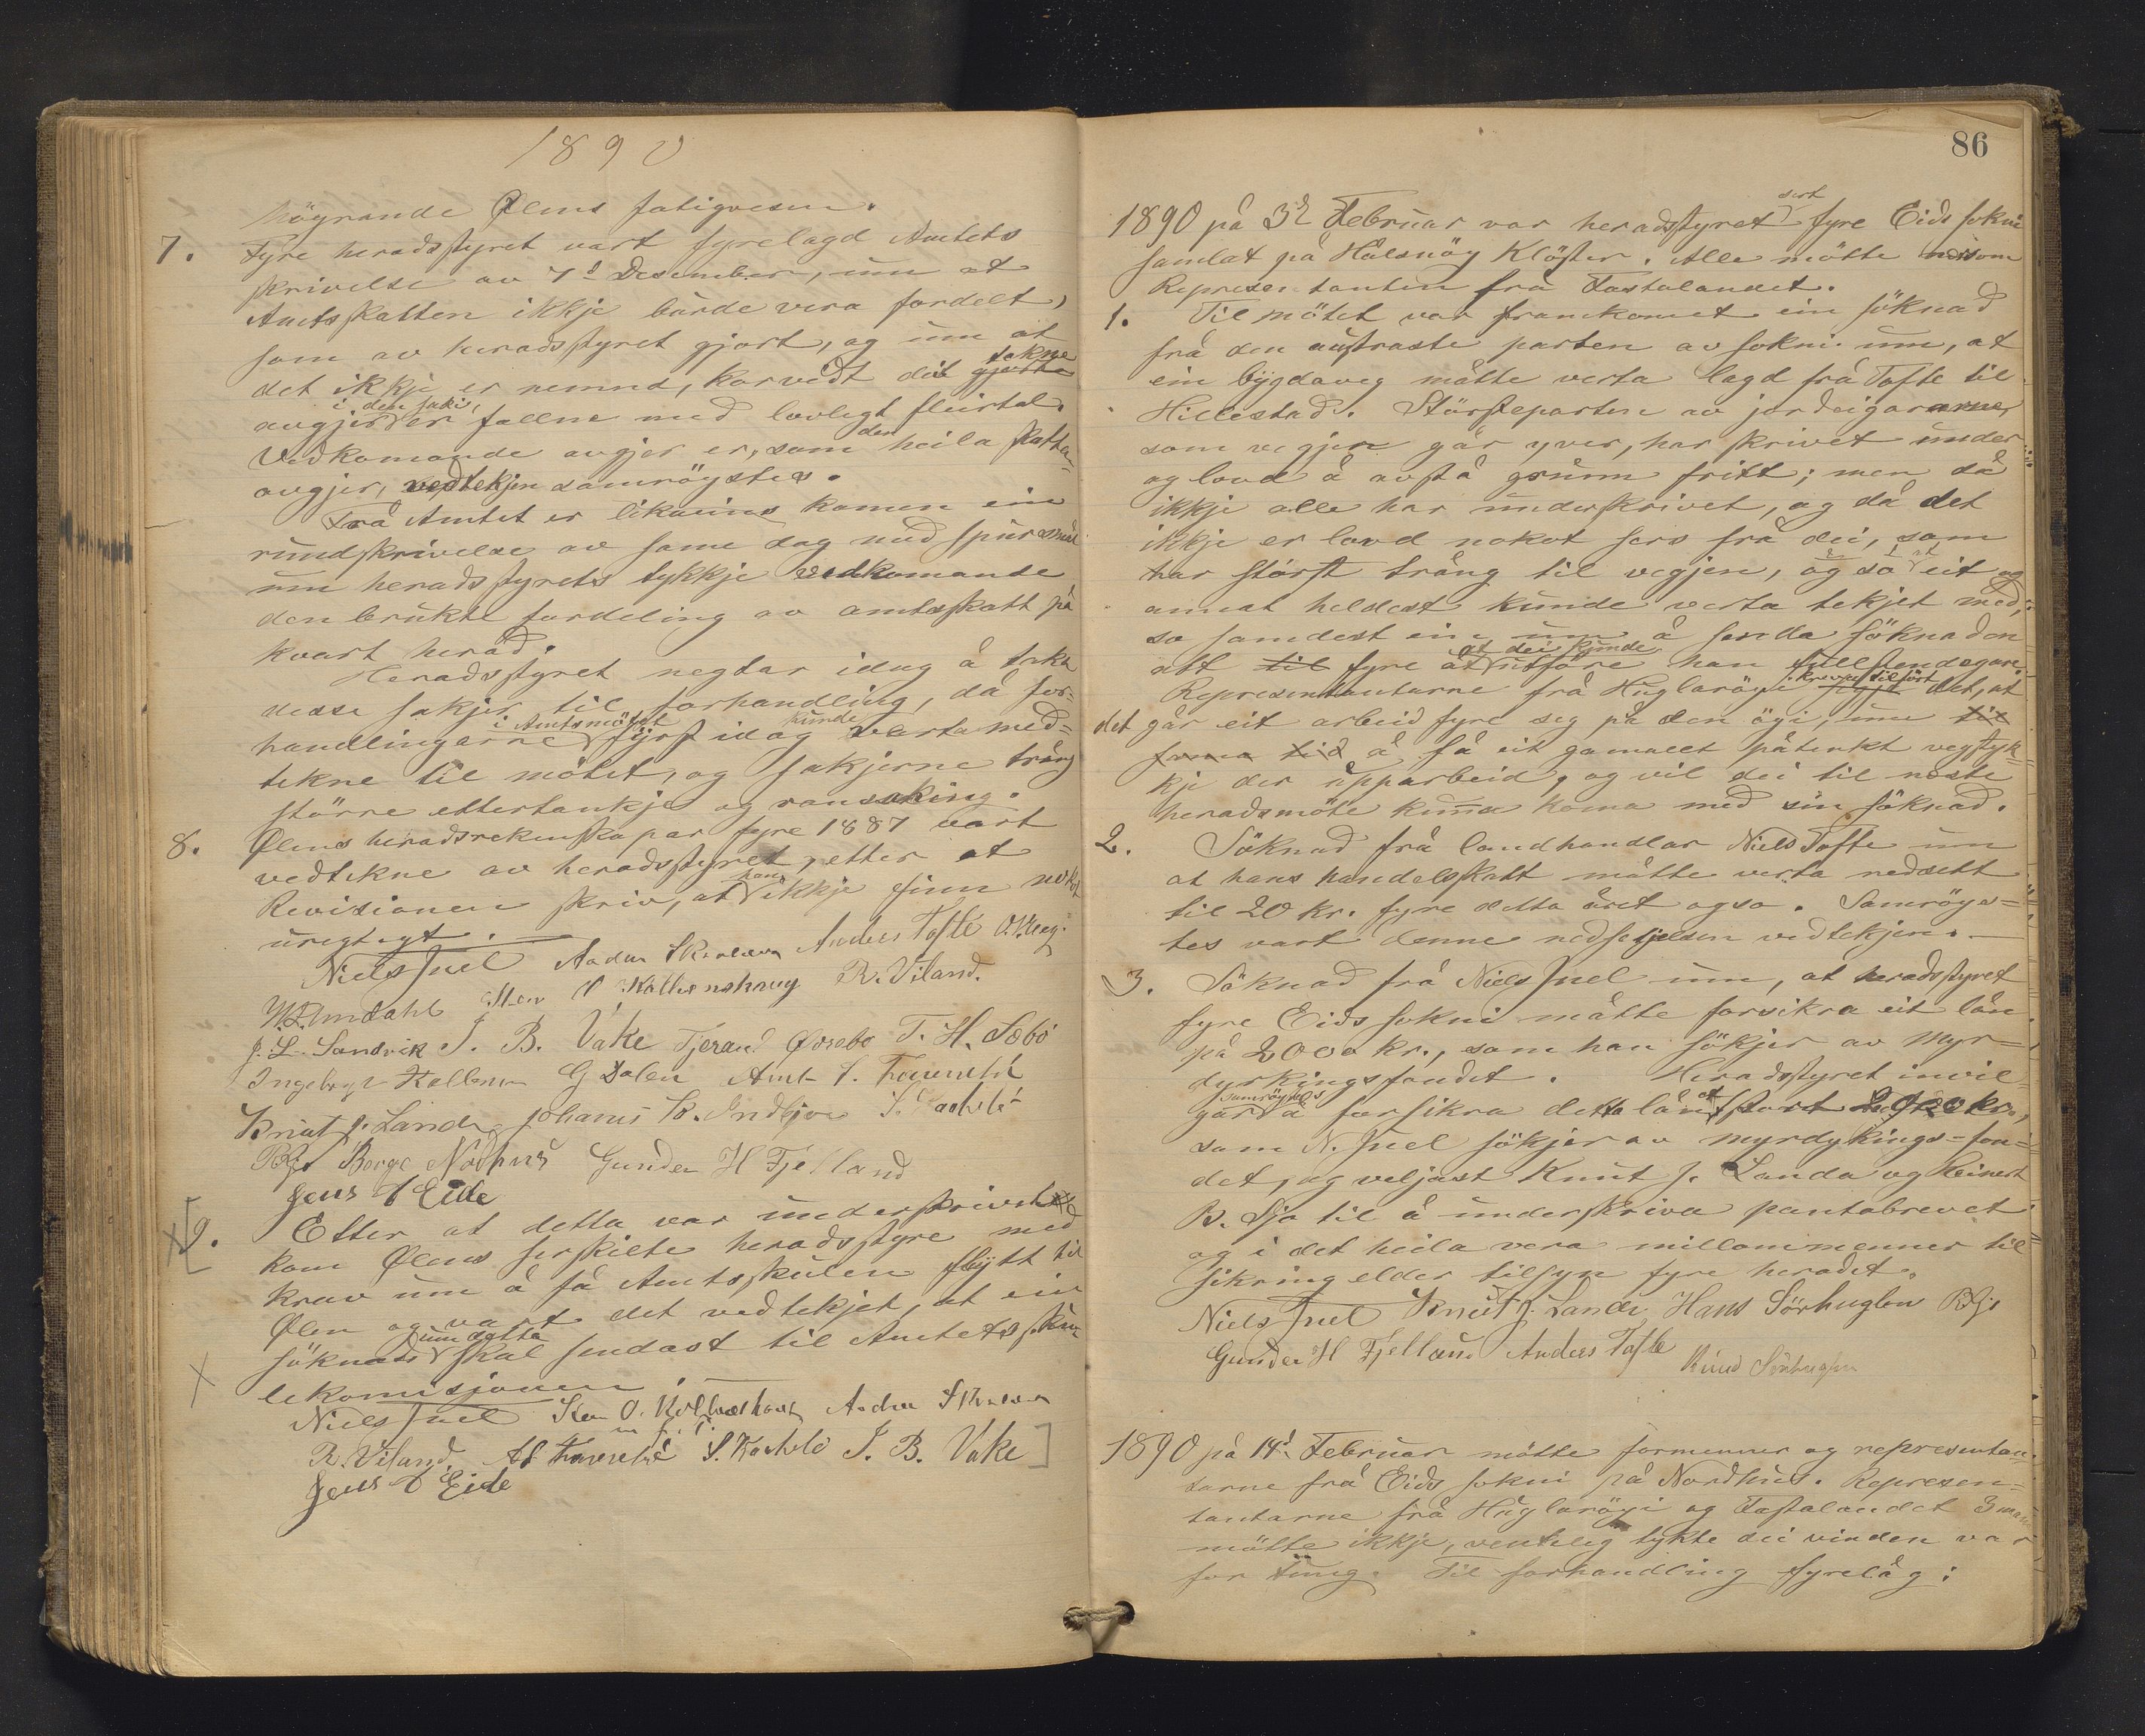 1890
högrande Ølens fatigvesen.
7. Fyre heradsstyret vart fyrelagd Amtets
skrivelse av 7d Desember, um at
Amtsskatten ikkje burde vera fordelt,
som av heradsstyret gjort, og um at
det ikkje er nemnd, korvidt dei tekne gjorte
avgjerder i den saki, er fallne med lovlegt fleirtal.
Vedkomande avgjer er, som den heila skatte-
avgjer, vedtekjen samröystes.
Frå Amtet er likeeins komen ein
rundskrivelse av same dag med spursmål
um heradsstyrets tykkje vedkomande
den brukte fordeling av amtsskatt på
kvart herad.
Heradsstyret negtar idag å taka
desse sakjer til forhandling, då for-
handlingarne i Amtsmötet fyrst idag kunde verta med-
tekne til mötet, og sakjerne trång
större ettertankje og ransaking.
8. Ølens heradsrekenskapar fyre 1887 vart
vedtekne av heradsstyret, etter at
Revisionen skriv, at han ikkje finn nokot
urigtigt.
Niels Juel Anders Tofte
W. Undahl R. Viland.
J. L. Sandvik J. B. Vake Tjerand Øvrebø T. H. Sæbö
G Dalen
Knut J. Landa Johanes
Børge Nodhus Gunder H Fjelland
Jens T Eide
9. Etter at detta var underskrivet
kom Ølens serskilte heradsstyre med
krav um å få Amtsskulen flytt til
Ølen og vart det vedtekjet, at ein
söknad um detta skal sendast til Amtets sku-
lekomisjonen.
Niels Juel
R. Viland. J. B. Vake
Jens T Eide
86
1890 på 3d Februar var heradsstyret sert fyre Eids sokn
samlat på Halsnöy Klöster. Alle mötte
Representanten frå Fastalandet.
1. Til mötet var framkomet ein söknad
frå den austraste parten av sokni um, at
ein bygdaveg måtte verta lagd frå Tofte til
Hillestad. Störsteparten av jordeigararne,
som vegjen går yver, har skrivet under
og lovd å avstå grunn fritt; men då
ikkje alle har underskrivet, og då det
ikkje er lovd nokot sers frå dei, som
har störst trång til vegjen, og so at eit og
annat heldest kunde verta tekjet med,
so samdest ein um å senda söknaden
att til fyre at dei kunde utföre han fullstendegare.
Representantarne frå Huglaröyi krevja tilfört segja det, at
det går eit arbeid fyre seg på den öyi, um til
sama tid å få eit gamallt påtenkt vegstyk-
kje der upparbeid, og vil dei til neste
heradsmöte kunna koma med sin söknad.
2. Söknad frå landhandlar Niels Tofte um
at hans handelsskatt måtte verta nedsett
til 20 kr. fyre detta året ogso. Samröys-
tes vart denne nedsetjelsen vedtekjen.
3. Söknad frå Niels Juel um, at heradsstyret
fyre Eids sokni måtte forsikra eit lån
på 2000 kr., som han sökjer av Myr-
dyrkingsfondet. Heradsstyret invil-
gar samröystes å forsikra detta lånet stort 2000 kr.,
som N. Juel sökjer av myrdykings-fon-
det, og veljast Knut J. Landa og Reinert
B. Sjo til å underskriva pantebrevet
og i det heila vera millommenner til
sikring elder tilsyn fyre heradet.
Niels Juel Knut J. Landa Hans Sörhuglen
Gunder H Fjelland Anders Tofte
Knud Sörhuglen
1890 på 14d Februar mötte formenner og representan-
tarne frå Eids sokni på Nordhus. Represen-
tantarne frå Huglaröyi og Fastalandet 3 mann
mötte ikkje, venteleg tykte dei vinden var
for tung. Til forhandling fyrelåg: